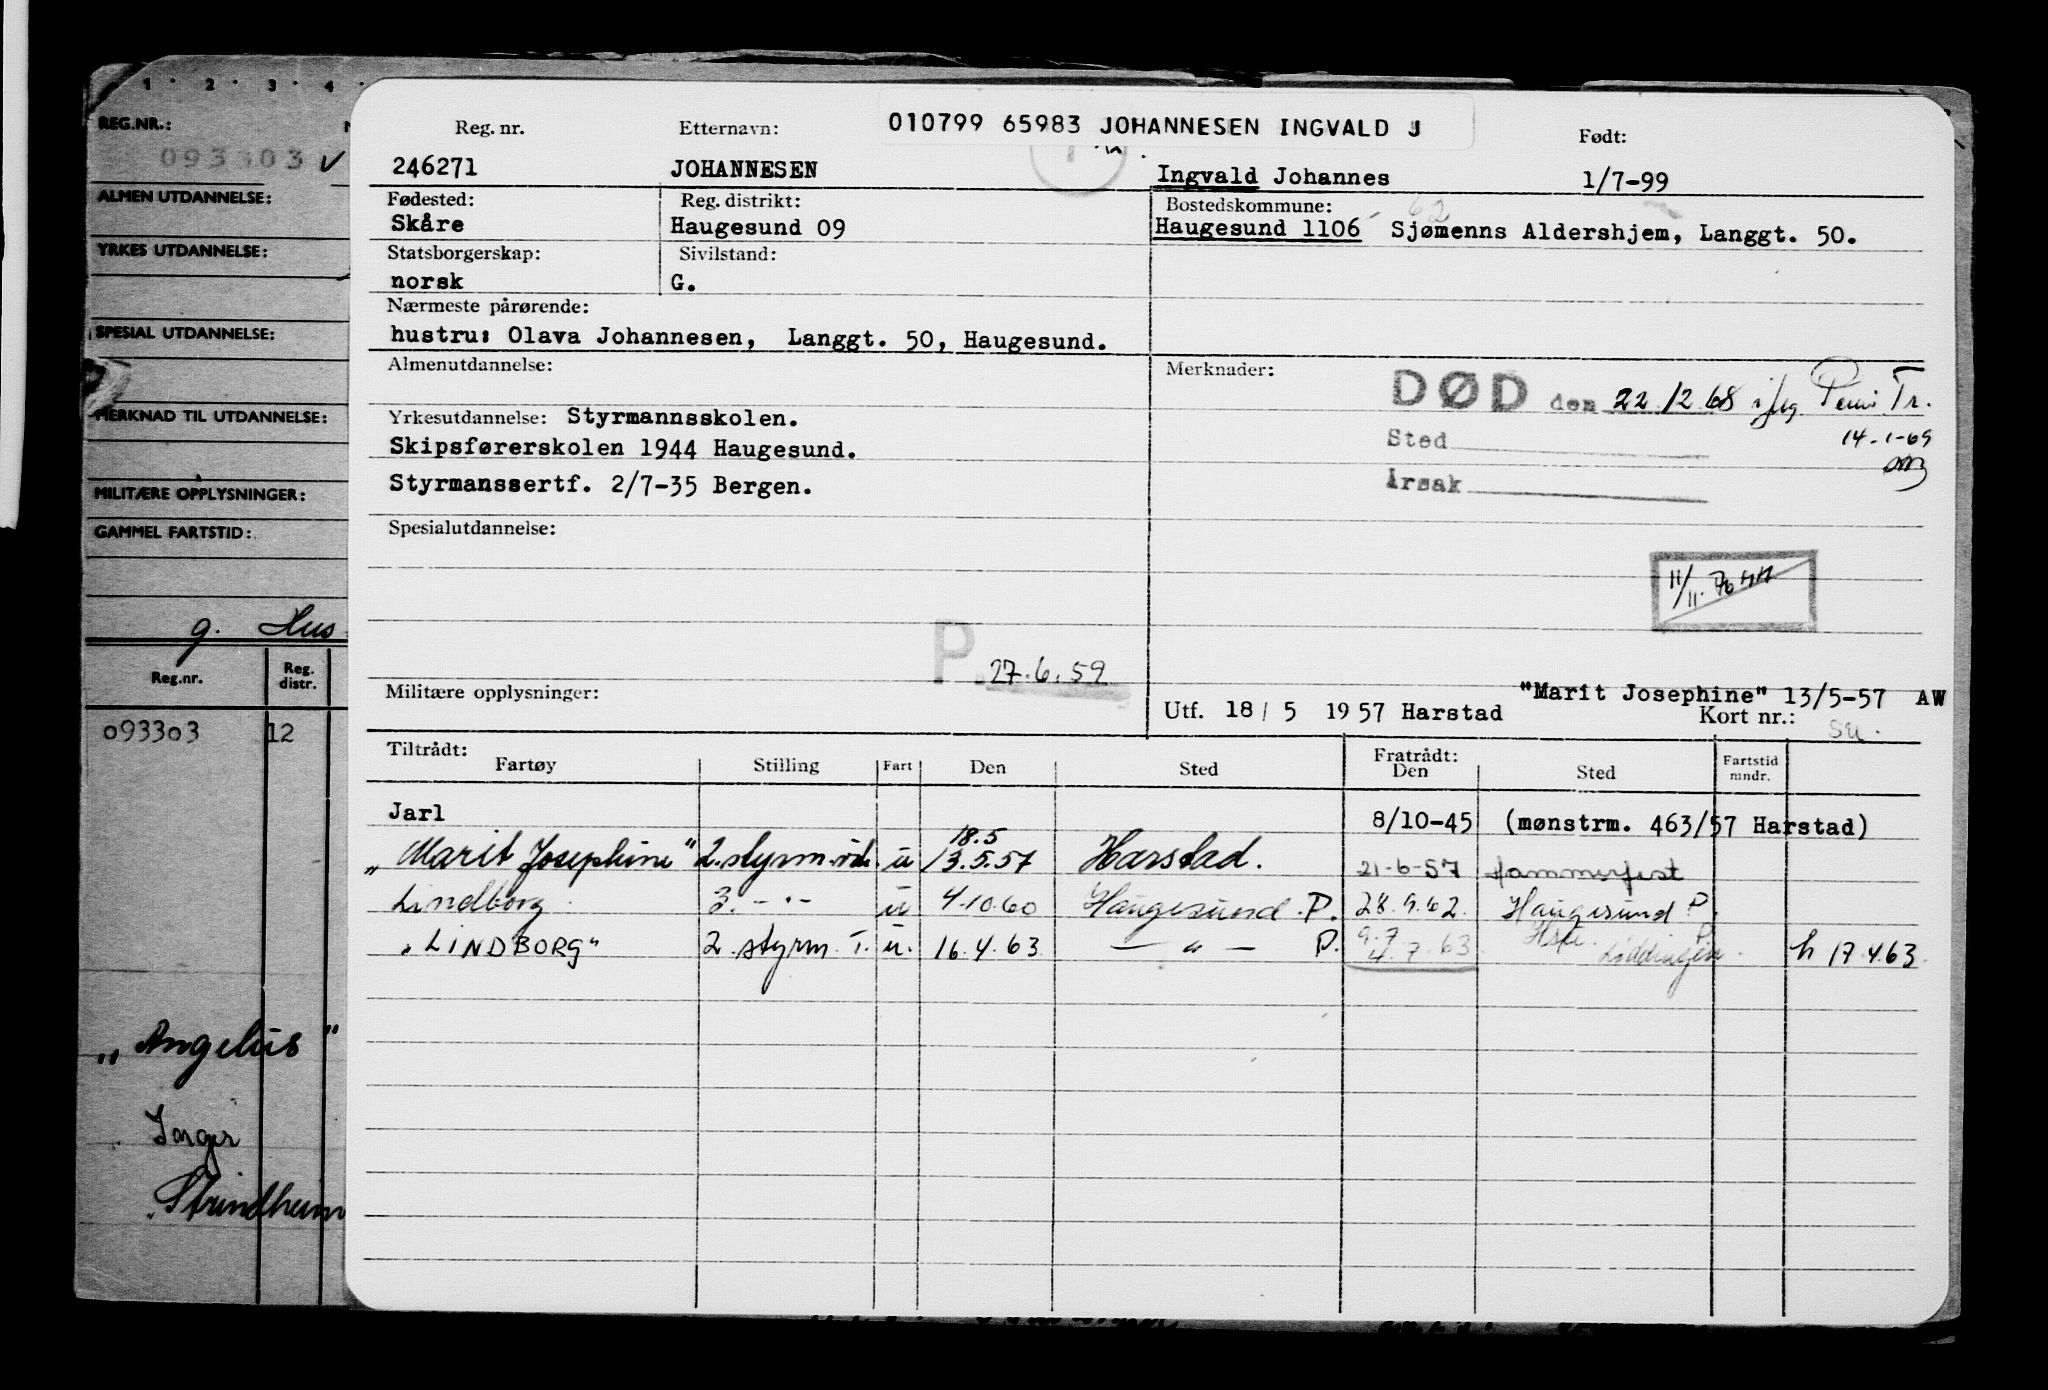 1 2 3 4
REG.NR.:
093303 ✓
ALMEN UTDANNELSE:
YRKES UTDANNELSE:
SPESIAL UTDANNELSE:
MERKNAD TIL UTDANNELSE:
MILITÆRE OPPLYSNINGER:
GAMMEL FARTSTID:
g. Hus
Reg.nr. Reg. distr.
093303 12
„Angelus"
Inger
Strindheim
010799 65983 JOHANNESEN INGVALD J
Reg. nr. Etternavn: Født:
246271 JOHANNESEN Ingvald Johannes 1/7-99
Fødested: Reg. distrikt: Bostedskommune:
Skåre Haugesund 09 Haugesund 1106 62 Sjømenns Aldershjem, Langgt. 50.
Statsborgerskap: Sivilstand:
norsk G.
Nærmeste pårørende:
hustru: Olava Johannesen, Langgt. 50, Haugesund.
Almenutdannelse: Merknader:
DØD den 22/12 68 Tr.
14-1-69
Yrkesutdannelse: Styrmannsskolen.
Sted
Skipsførerskolen 1944 Haugesund.
Årsak
Styrmanssertf. 2/7-35 Bergen.
Spesialutdannelse:
11/11.
P. 27.6.59
Militære opplysninger:
"Marit Josephine" 13/5-57 AW
Utf. 18/5 1957 Harstad Kort nr.:
Tiltrådt: Fratrådt:
Fartøy Stilling Fart Den Sted Den Sted Fartstid mndr.
Jarl 8/10-45 (mønstrm. 463/57 Harstad)
18.5
„Marit Josephine" 2. styrm. u 13.5.57 Harstad. 21-6-57 Hammerfest
Lindborg 3. -"- u 4.10.60 Haugesund P. 28.9.62. Haugesund P.
9.7 P.
"LINDBORG" 2. styrm. T. u. 16.4.63 — " — P. 4.7.63 Lødingen. h 17.4.63.